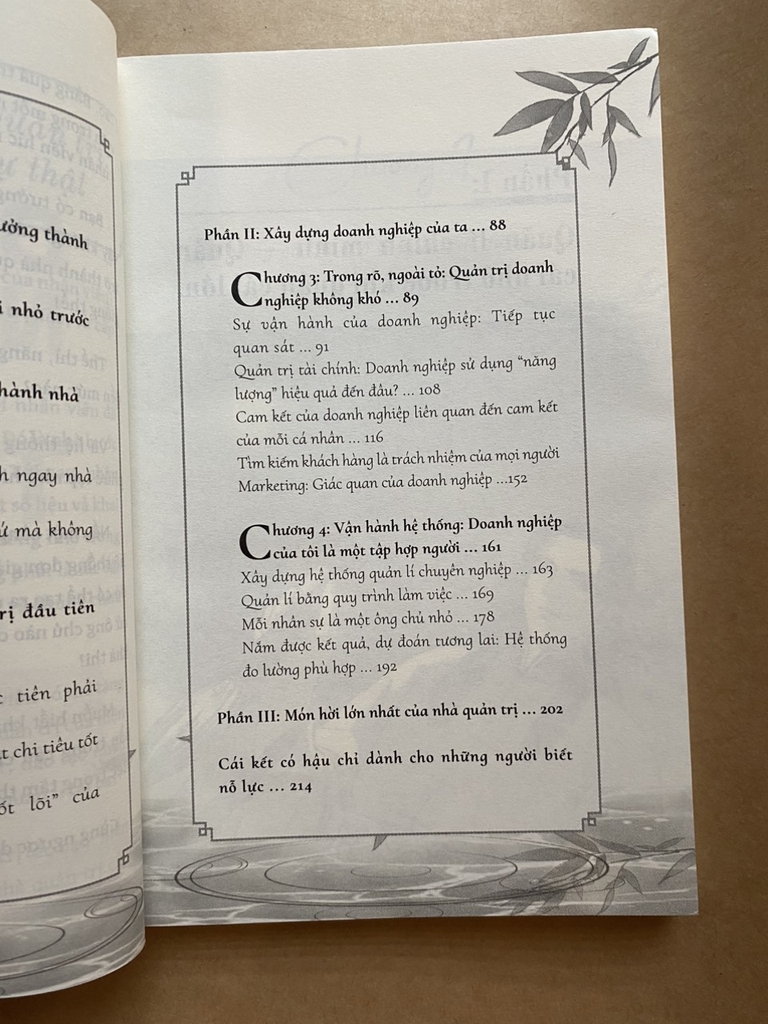 ưởng thành
nhỏ trước
hành nhà
ngay nhà
mà không
đầu tiên
tiên phải
chi tiêu tốt
lõi" của
Phần II: Xây dựng doanh nghiệp của ta ... 88
Chương 3: Trong rõ, ngoài tỏ: Quản trị doanh
nghiệp không khó ... 89
Sự vận hành của doanh nghiệp: Tiếp tục
quan sát ... 91
Quản trị tài chính: Doanh nghiệp sử dụng "năng
lượng" hiệu quả đến đâu? ... 108
Cam kết của doanh nghiệp liên quan đến cam kết
của mỗi cá nhân ... 116
Tìm kiếm khách hàng là trách nhiệm của mọi người
Marketing: Giác quan của doanh nghiệp ...152
Chương 4: Vận hành hệ thống: Doanh nghiệp
của tôi là một tập hợp người ... 161
Xây dựng hệ thống quản lí chuyên nghiệp ... 163
Quản lí bằng quy trình làm việc ... 169
Mỗi nhân sự là một ông chủ nhỏ ... 178
Nắm được kết quả, dự đoán tương lai: Hệ thống
đo lường phù hợp ... 192
Phần III: Món hời lớn nhất của nhà quản trị ... 202
Cái kết có hậu chỉ dành cho những người biết
nỗ lực ... 214